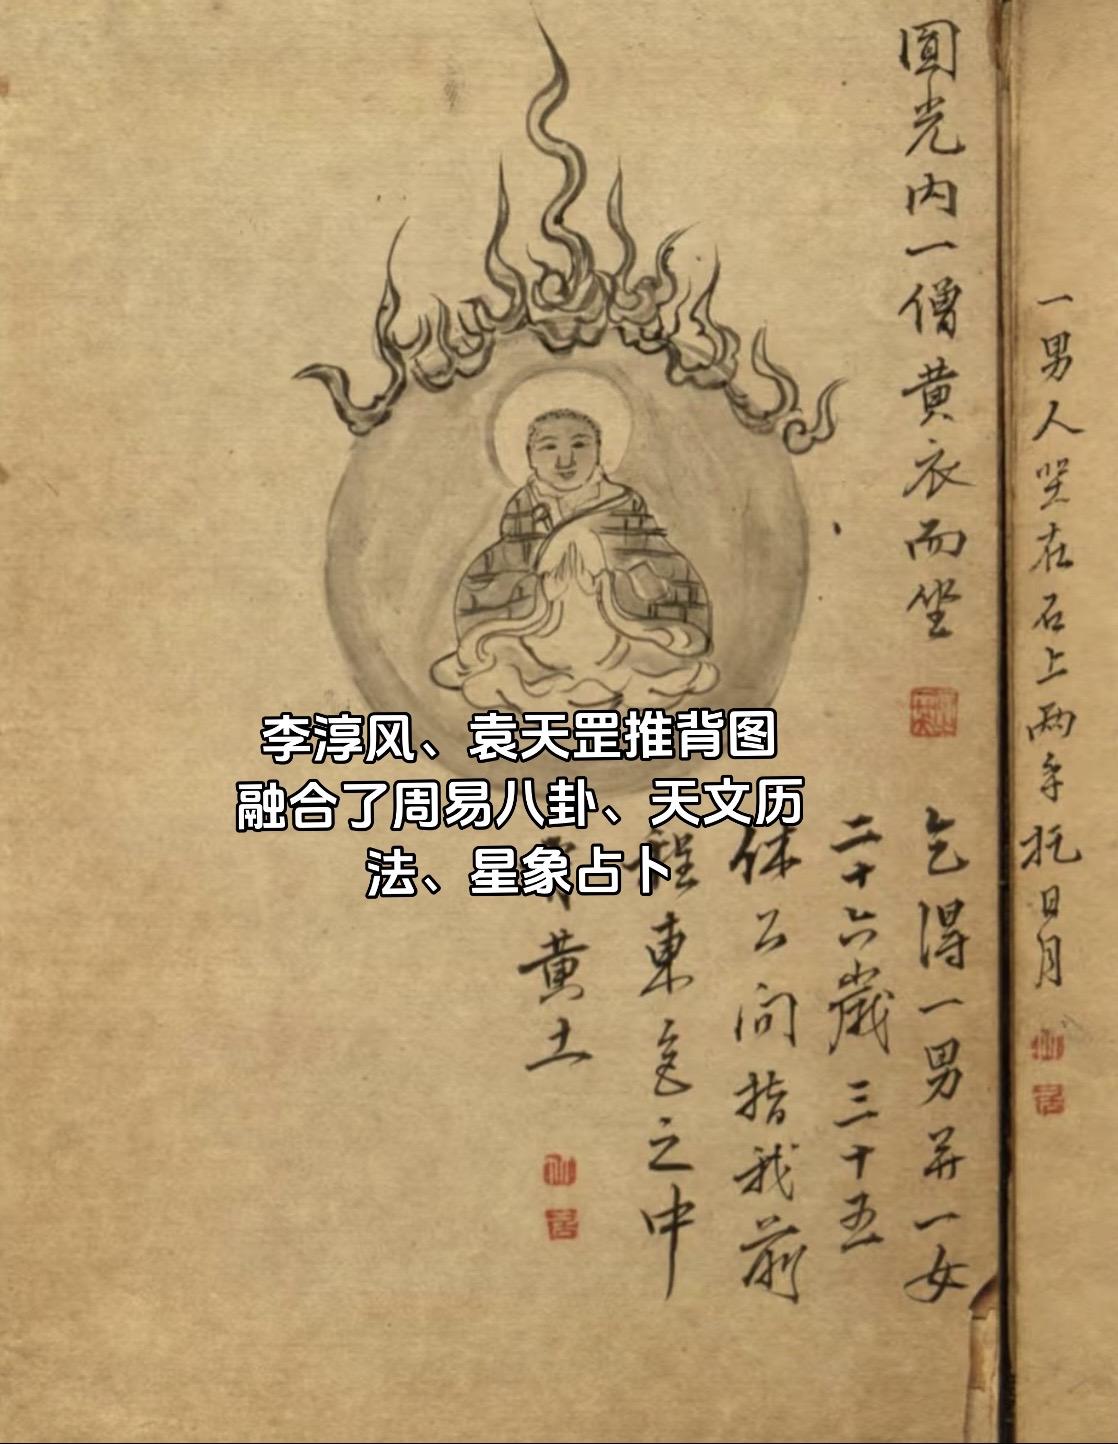 一男人坐在石上兩手托日月
圓光内一僧黄衣而坐
乞得一男并一女
二十六歲三十五
休公問指我前
程東邑之中
黄土
李淳风、袁天罡推背图
融合了周易八卦、天文历
法、星象占卜